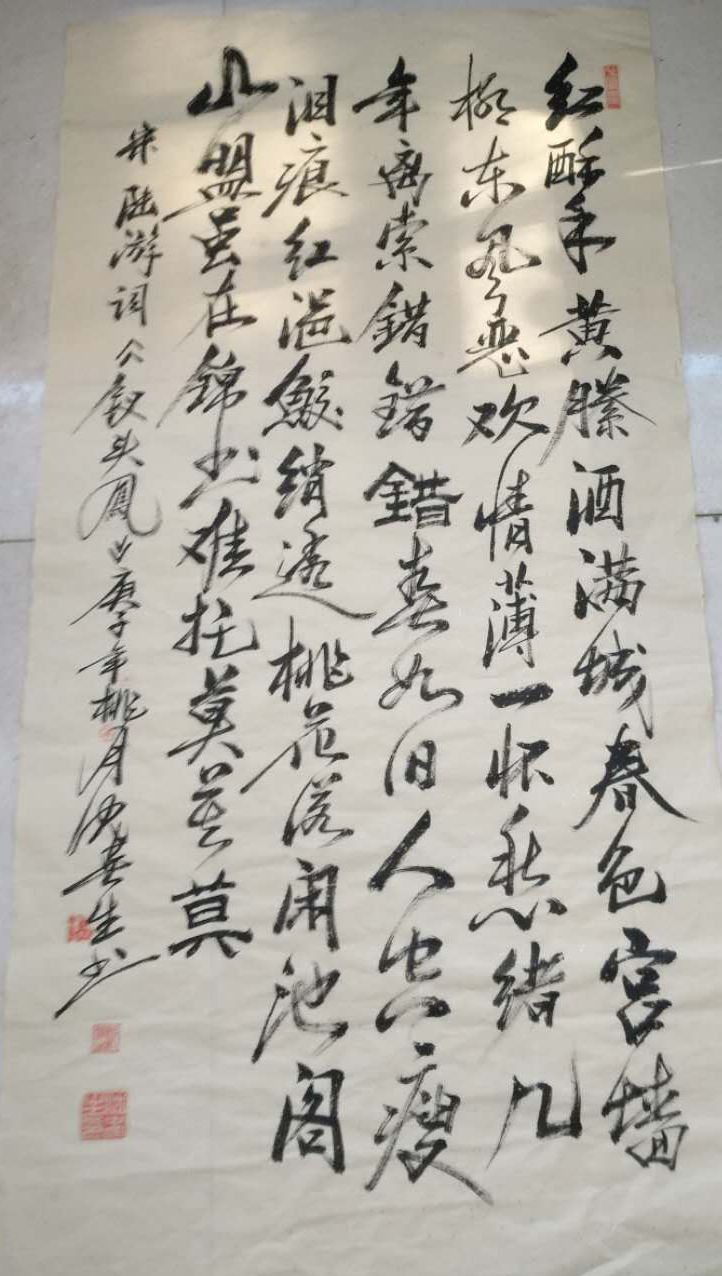 红酥手黄縢酒满城春色宫墙
柳东风恶欢情薄一怀愁绪几
年离索错错错春如旧人空瘦
泪痕红浥鲛绡透桃花落闲池阁
山盟虽在锦书难托莫莫莫
宋陆游词《钗头凤》庚子年桃月 春生书